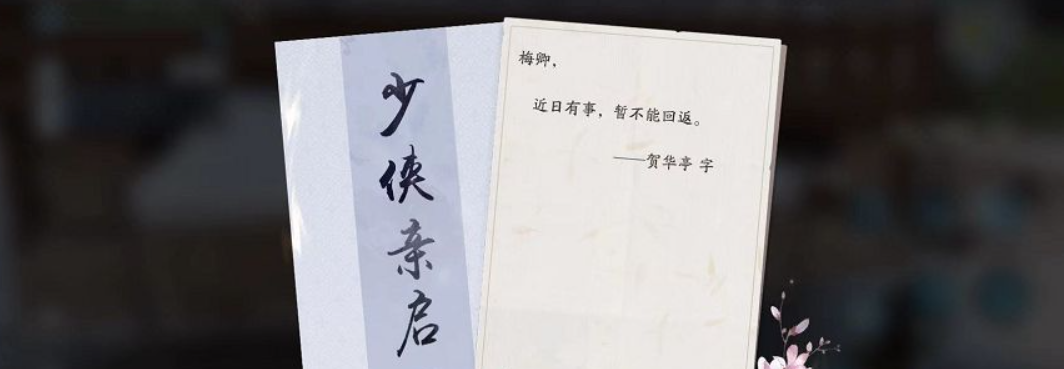 少侠亲启
梅卿，
近日有事，暂不能回返。
——贺华亭 字